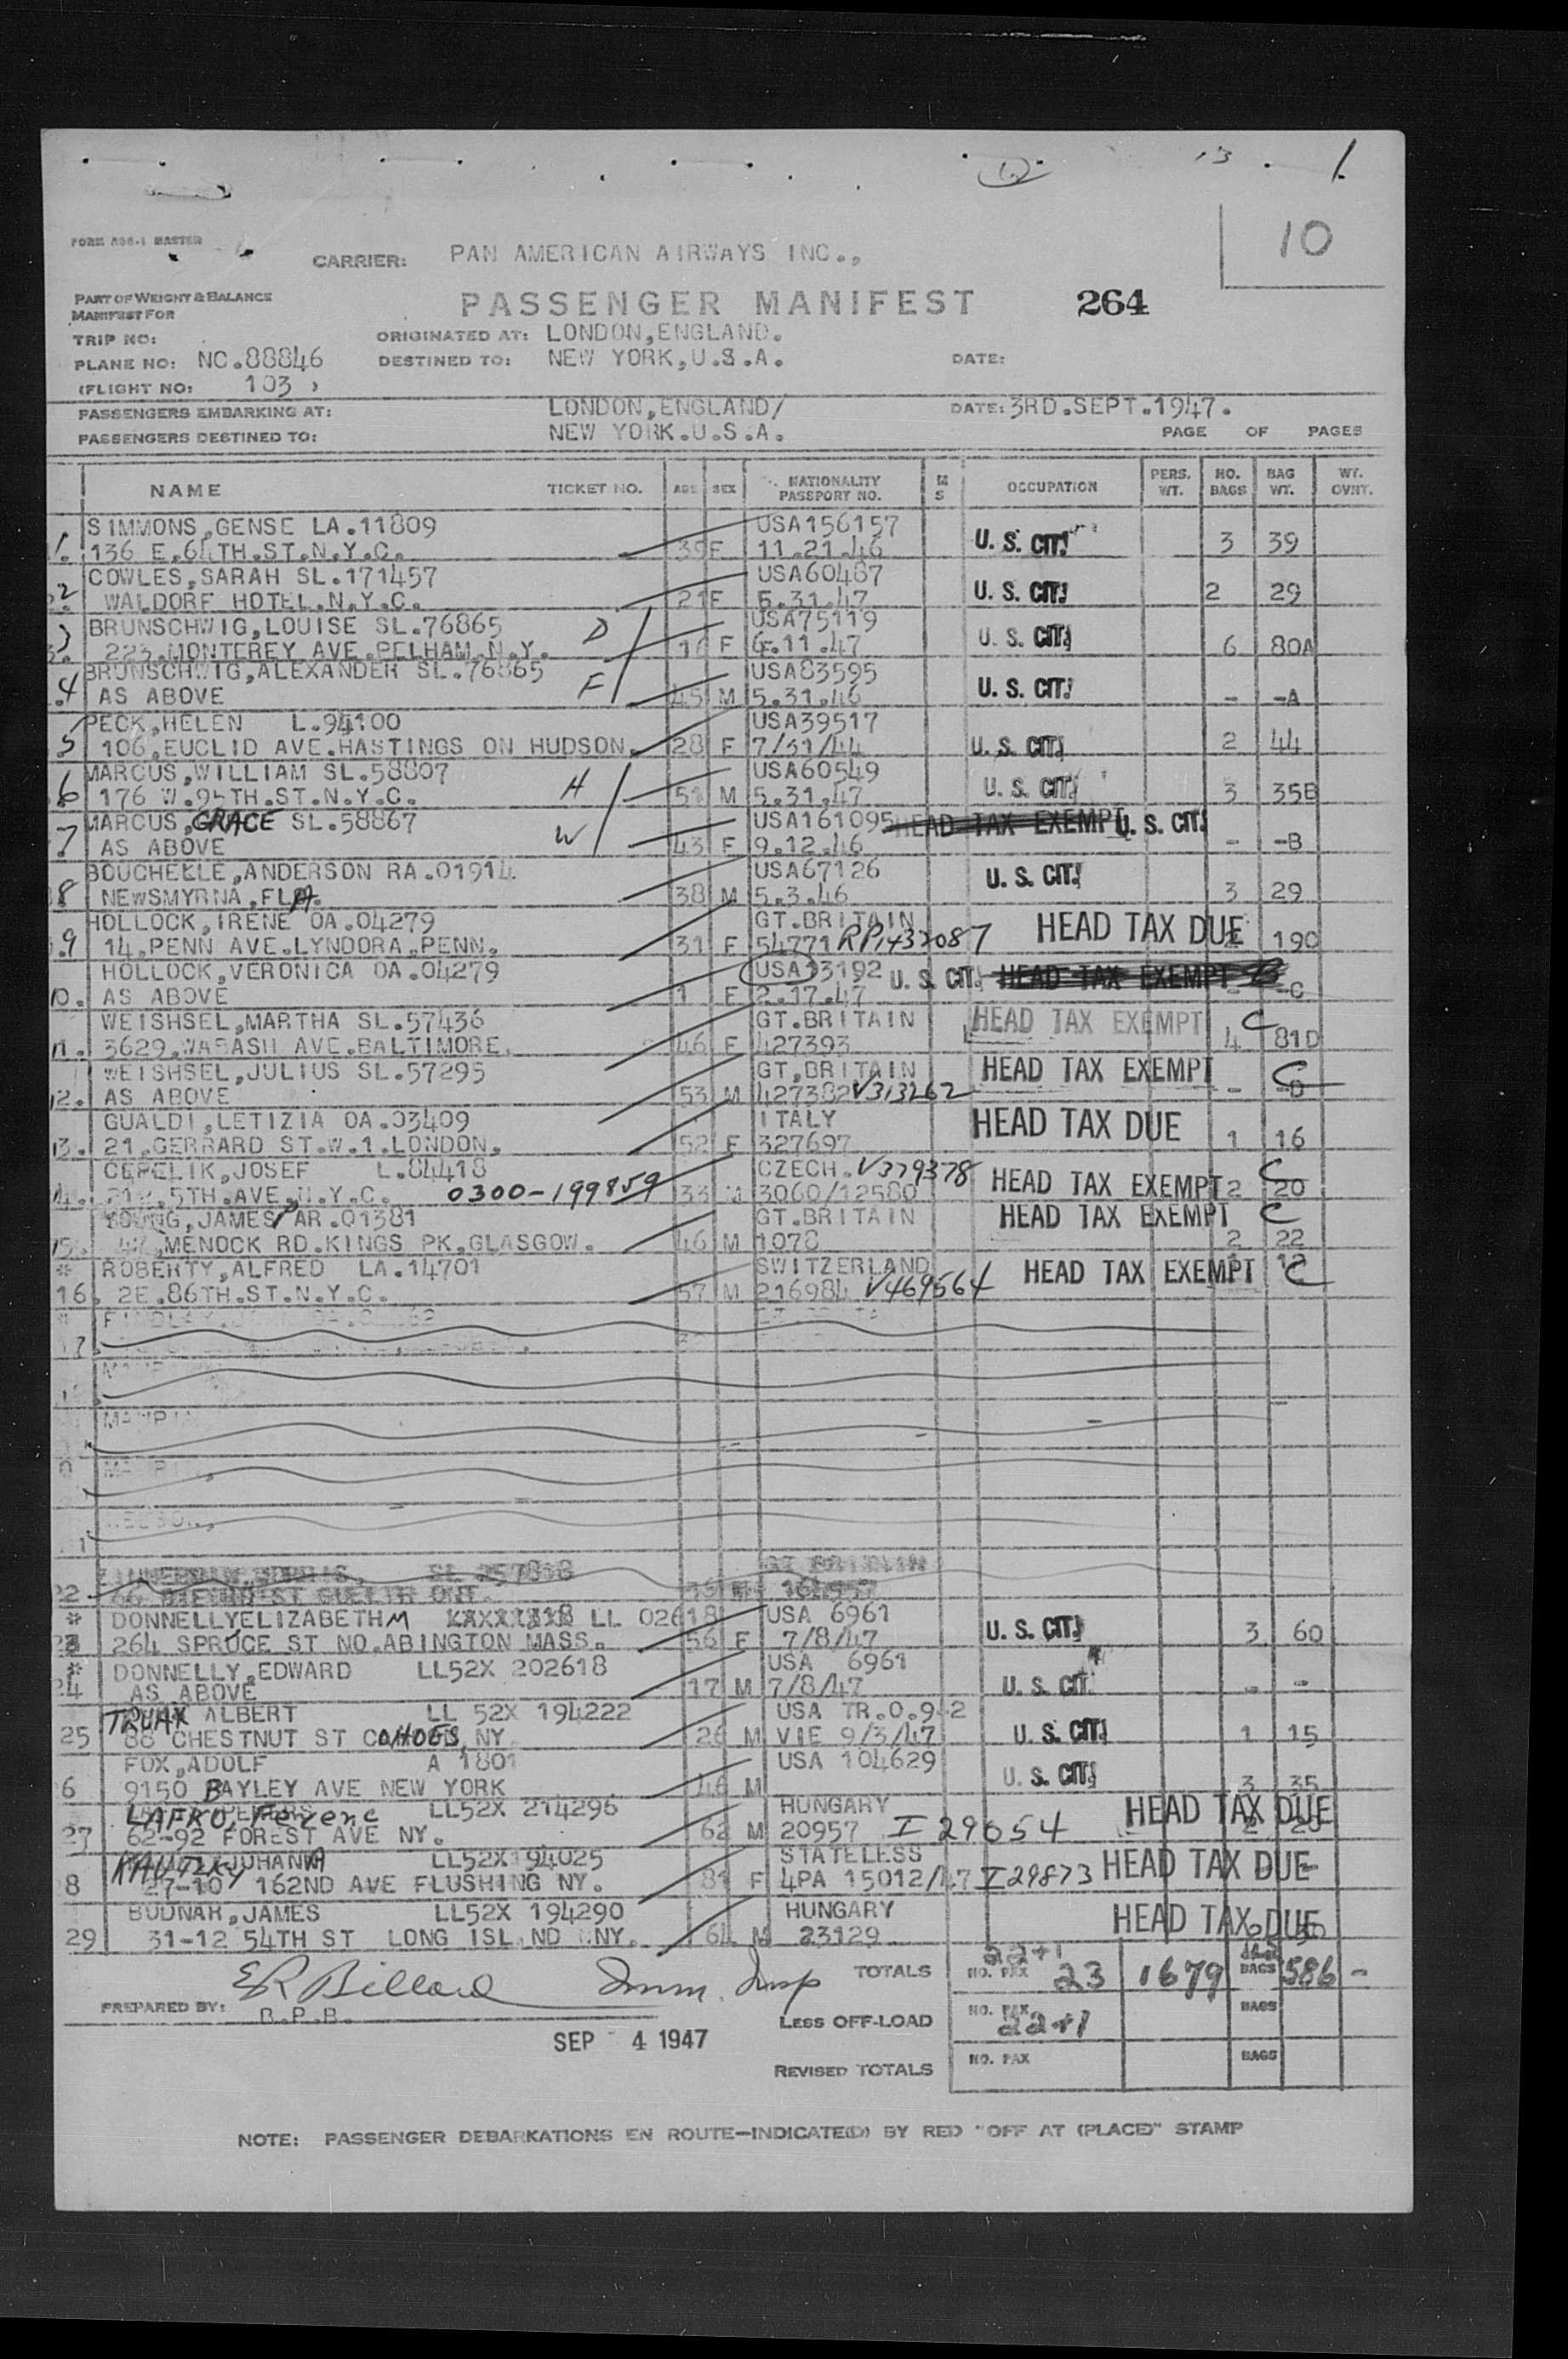 13 . 1
10
FORM A96-1 MASTER
CARRIER: PAN AMERICAN AIRWAYS INC.,
PART OF WEIGHT & BALANCE
MANIFEST FOR
PASSENGER MANIFEST 264
TRIP NO: ORIGINATED AT: LONDON,ENGLAND.
PLANE NO: NC.88846 DESTINED TO: NEW YORK,U.S.A. DATE:
(FLIGHT NO: 103 )
PASSENGERS EMBARKING AT: LONDON,ENGLAND/ DATE: 3RD.SEPT.1947.
PASSENGERS DESTINED TO: NEW YORK.U.S.A. PAGE OF PAGES
NAME TICKET NO. AGE SEX NATIONALITY PASSPORT NO. M S OCCUPATION PERS. WT. NO. BAGS BAG WT. WT. OVNT.
SIMMONS,GENSE LA.11809 USA156157
1. 136 E.64TH.ST.N.Y.C. 39 F 11.21.46 U. S. CIT. 3 39
COWLES,SARAH SL.171457 USA60487
2. WALDORF HOTEL.N.Y.C. 21 F 5.31.47 U. S. CIT. 2 29
BRUNSCHWIG,LOUISE SL.76865 D USA75119
3. 223.MONTEREY AVE.PELHAM.N.Y. 16 F 6.11.47 U. S. CIT. 6 80A
BRUNSCHWIG,ALEXANDER SL.76865 F USA83595
4 AS ABOVE 45 M 5.31.46 U. S. CIT. - -A
PECK,HELEN L.94100 USA39517
5 106,EUCLID AVE.HASTINGS ON HUDSON. 28 F 7/31/44 U. S. CIT. 2 44
MARCUS,WILLIAM SL.58807 H USA60549
6 176 W.95TH.ST.N.Y.C. 51 M 5.31.47 U. S. CIT. 3 35B
MARCUS,GRACE SL.58867 W USA161095 HEAD TAX EXEMPT U. S. CIT.
7 AS ABOVE 43 F 9.12.46 - -B
BOUCHELLE,ANDERSON RA.01914 USA67126
8 NEWSMYRNA,FLA. 38 M 5.3.46 U. S. CIT. 3 29
HOLLOCK,IRENE OA.04279 GT.BRITAIN HEAD TAX DUE
9 14,PENN AVE.LYNDORA.PENN. 31 F 54771 RP1432087 19C
HOLLOCK,VERONICA OA.04279 USA13192 U. S. CIT. HEAD TAX EXEMPT
10. AS ABOVE 1 F 2.17.47 - -C
WEISHSEL,MARTHA SL.57436 GT.BRITAIN HEAD TAX EXEMPT C
11. 3629.WABASH AVE.BALTIMORE. 46 F 427393 4 81D
WEISHSEL,JULIUS SL.57295 GT.BRITAIN HEAD TAX EXEMPT C
12. AS ABOVE 53 M 427382 V313262 - -D
GUALDI,LETIZIA OA.03409 ITALY HEAD TAX DUE
13. 21,GERRARD ST.W.1.LONDON. 52 F 327697 1 16
CEPELIK,JOSEF L.84418 CZECH. V379378 HEAD TAX EXEMPT C
14. 5TH.AVE.N.Y.C. 0300-199859 33 M 3060/12580 2 20
YOUNG,JAMES P AR.01381 GT.BRITAIN HEAD TAX EXEMPT C
15. MENOCK RD.KINGS PK.GLASGOW. 46 M 1078 2 22
* ROBERTY,ALFRED LA.14701 SWITZERLAND HEAD TAX EXEMPT C
16. 2E.86TH.ST.N.Y.C. 57 M 216984 V469564
22 GT BRITAIN
* DONNELLY ELIZABETH M LL 02618 USA 6961
23 264 SPRUCE ST NO.ABINGTON MASS. 56 F 7/8/47 U. S. CIT. 3 60
* DONNELLY,EDWARD LL52X 202618 USA 6961
24 AS ABOVE 17 M 7/8/47 U. S. CIT. - -
TRUAX ALBERT LL 52X 194222 USA TR.0.9-2
25 88 CHESTNUT ST COHOES,NY. 26 M VIE 9/3/47 U. S. CIT. 1 15
FOX,ADOLF A 1801 USA 104629
6 9150 BAYLEY AVE NEW YORK 46 M U. S. CIT. 3 35
LAFKO, Ferenc LL52X 214296 HUNGARY HEAD TAX DUE
27 62-92 FOREST AVE NY. 62 M 20957 I 29654
KAUTZKY JOHANNA LL52X194025 STATELESS
8 27-10 162ND AVE FLUSHING NY. 81 F 4PA 15012/47 I29873 HEAD TAX DUE
BODNAR,JAMES LL52X 194290 HUNGARY HEAD TAX DUE
29 31-12 54TH ST LONG ISL ND NY. 64 M 23129
TOTALS NO. PAX 22+1 23 1679 BAGS 586 -
ER Billard Imm. Insp
PREPARED BY: B.P.B.
LESS OFF-LOAD NO. PAX 22+1 BAGS
SEP 4 1947
REVISED TOTALS NO. PAX BAGS
NOTE: PASSENGER DEBARKATIONS EN ROUTE—INDICATE(D) BY RED "OFF AT (PLACE)" STAMP